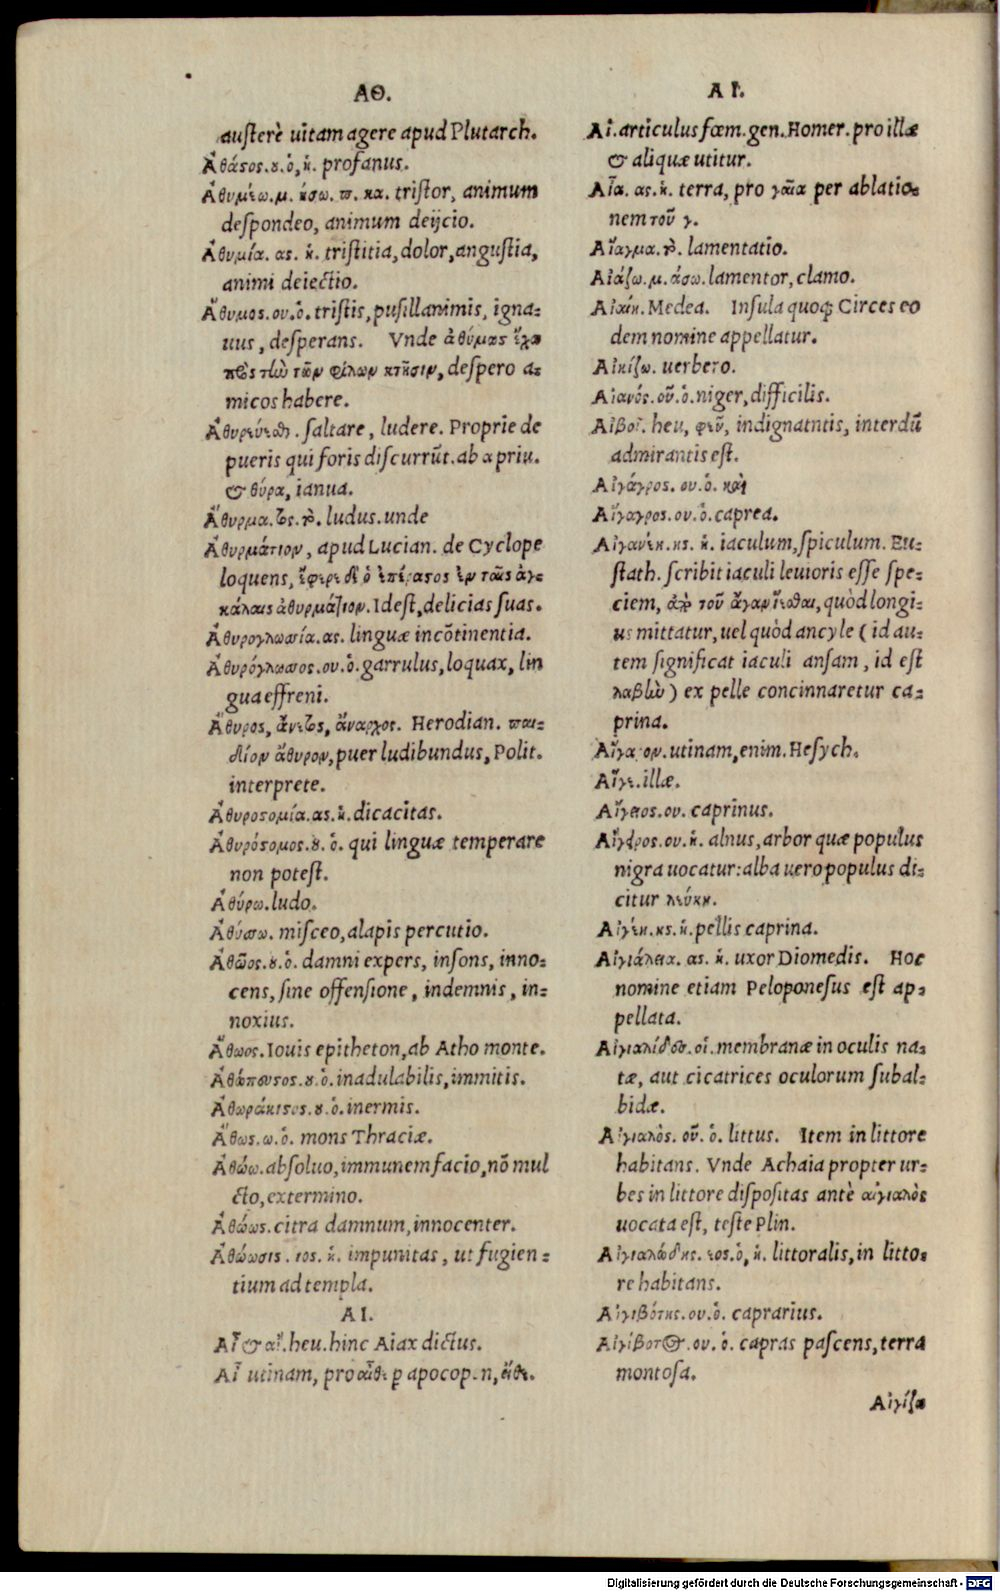 ΑΘ.
austerè uitam agere apud Plutarch.
Ἀθάτος.ου.ὁ,ἡ. profanus.
Ἀθυμέω.μ. ήσω. π. κα. tristor, animum
despondeo, animum deijcio.
Ἀθυμία. ας. ἡ. tristitia, dolor, angustia,
animi deiectio.
Ἄθυμος.ου.ὁ. tristis, pusillanimis, igna-
uus, desperans. Vnde ἀθύμως ἔχω
πρὸς τὴν τῶν φίλων κτῆσιν, despero a-
micos habere.
Ἀθυρεύεσθαι. saltare, ludere. Proprie de
pueris qui foris discurrũt. ab α priu.
& θύρα, ianua.
Ἄθυρμα.τος.τὸ. ludus. unde
Ἀθυρμάτιον, apud Lucian. de Cyclope
loquens, ἔφερε δὲ ὁ ἐπέραστος ἐν ταῖς ἀγ-
κάλαις ἀθυρμάτιον. Idest, delicias suas.
Ἀθυρογλωσσία.ας. linguæ incõtinentia.
Ἀθυρόγλωσσος.ου.ὁ. garrulus, loquax, lin
gua effreni.
Ἄθυρος, ἄνετος, ἄναρχος. Herodian. παι-
δίον ἄθυρον, puer ludibundus, Polit.
interprete.
Ἀθυροστομία.ας.ἡ. dicacitas.
Ἀθυρόστομος.ου. ὁ. qui linguæ temperare
non potest.
Ἀθύρω. ludo.
Ἀθύσσω. misceo, alapis percutio.
Ἀθῶος.ου.ὁ. damni expers, insons, inno-
cens, sine offensione, indemnis, in-
noxius.
Ἄθωος. Iouis epitheton, ab Atho monte.
Ἀθώπευτος.ου.ὁ. inadulabilis, immitis.
Ἀθωράκιστος.ου.ὁ. inermis.
Ἄθως.ω.ὁ. mons Thraciæ.
Ἀθώω. absoluo, immunem facio, nõ mul
cto, extermino.
Ἀθώως. citra damnum, innocenter.
Ἀθώωσις. ιος. ἡ. impunitas, ut fugien-
tium ad templa.
ΑΙ.
Αἲ & αἴ. heu. hinc Aiax dictus.
Αἲ utinam, pro αἴθε ꝑ apocop. n, εἴθε.
ΑΙ.
Αἱ. articulus fœm. gen. Homer. pro illæ
& aliquæ utitur.
Αἶα. ας. ἡ. terra, pro γαῖα per ablatio-
nem τοῦ γ.
Αἴαγμα.τὸ. lamentatio.
Αἰάζω.μ.άσω. lamentor, clamo.
Αἰαίη. Medea. Insula quoq; Circes eo
dem nomine appellatur.
Αἰκίζω. uerbero.
Αἰανός.οῦ.ὁ. niger, difficilis.
Αἰβοῖ. heu, φεῦ, indignatntis, interdũ
admirantis est.
Αἰγάγρος. ου.ὁ. καὶ
Αἴγαγρος.ου.ὁ. caprea.
Αἰγανέη.ης. ἡ. iaculum, spiculum. Eu-
stath. scribit iaculi leuioris esse spe-
ciem, ἀπὸ τοῦ ἄγαν ἵεσθαι, quòd longi-
us mittatur, uel quòd ancyle (id au-
tem significat iaculi ansam, id est
λαβὼ) ex pelle concinnaretur ca-
prina.
Αἴγα ον. utinam, enim. Hesych.
Αἴγε. illæ.
Αἴγειος.ου. caprinus.
Αἴγειρος.ου.ἡ. alnus, arbor quæ populus
nigra uocatur: alba uero populus di-
citur λεύκη.
Αἰγέη.ης.ἡ. pellis caprina.
Αἰγιάλεια. ας. ἡ. uxor Diomedis. Hoc
nomine etiam Peloponesus est ap-
pellata.
Αἰγιαλίδες.οἱ. membranæ in oculis na-
tæ, aut cicatrices oculorum subal-
bidæ.
Αἰγιαλὸς. οῦ. ὁ. littus. Item in littore
habitans. Vnde Achaia propter ur-
bes in littore dispositas antè αἰγιαλὸς
uocata est, teste Plin.
Αἰγιαλώδης. εος.ὁ, ἡ. littoralis, in litto-
re habitans.
Αἰγιβότης.ου.ὁ. caprarius.
Αἰγίβοτος.ου. ὁ. capras pascens, terra
montosa.
Αἰγίζω
Digitalisierung gefördert durch die Deutsche Forschungsgemeinschaft - DFG